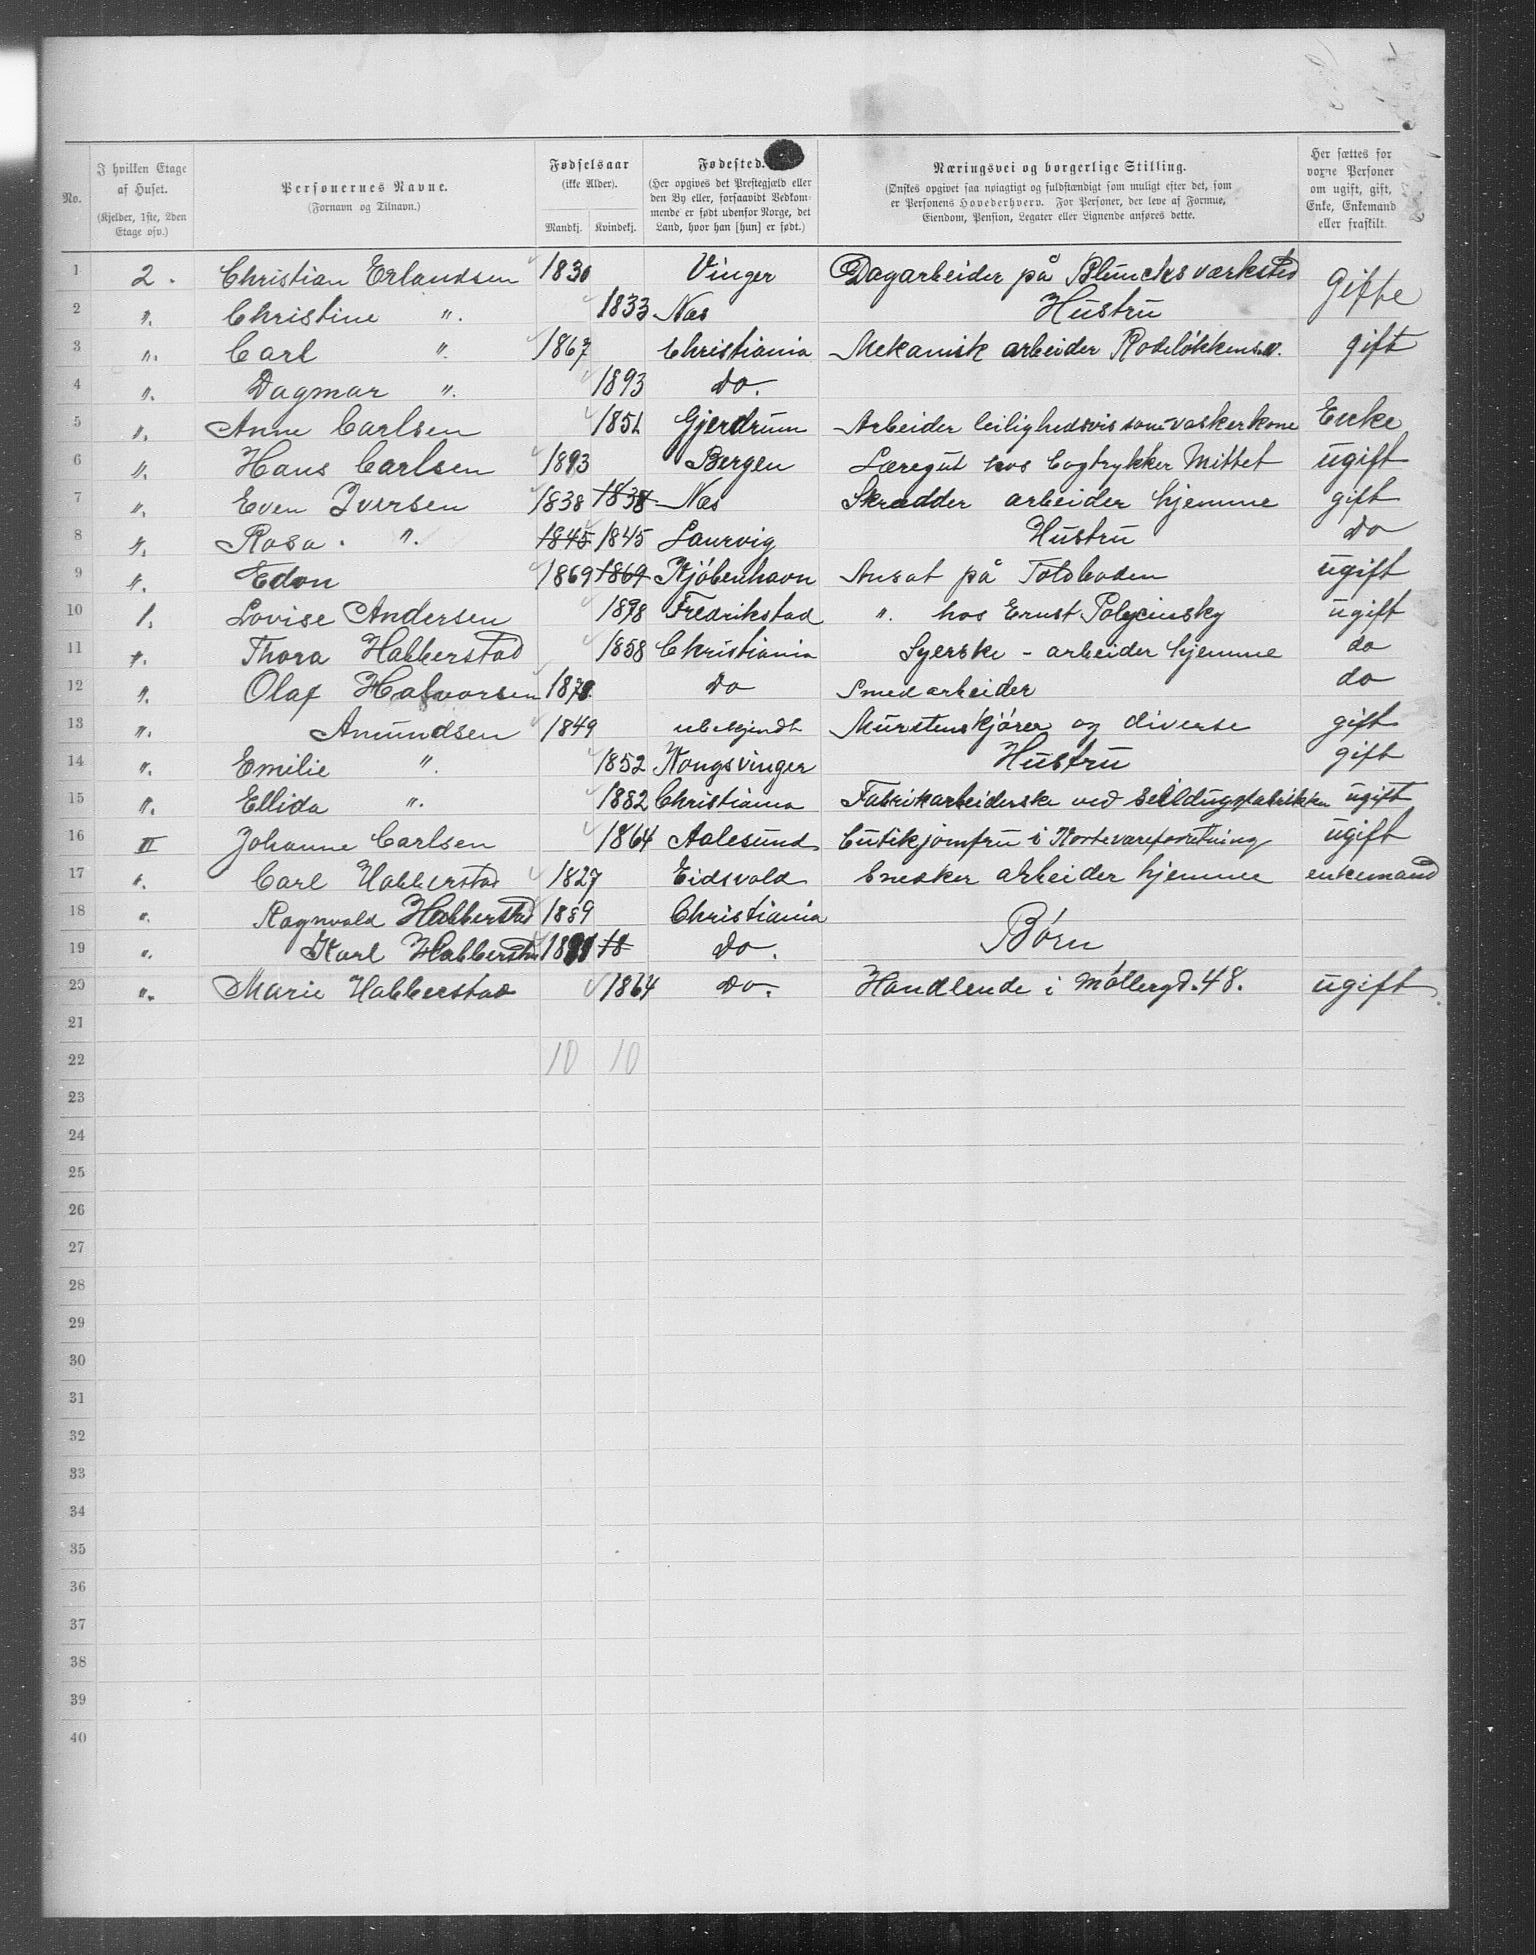 No.
I hvilken Etage af Huset. (Kjelder, 1ste, 2den Etage osv.)
Personernes Navne. (Fornavn og Tilnavn.)
Fødselsaar (ikke Alder). Mandkj. Kvindekj.
Fødested. (Her opgives det Prestegjæld eller den By eller, forsaavidt Vedkommende er født udenfor Norge, det Land, hvor han [hun] er født.)
Næringsvei og borgerlige Stilling. (Ønskes opgivet saa nøiagtigt og fuldstændigt som muligt efter det, som er Personens Hovederhverv. For Personer, der leve af Formue, Eiendom, Pension, Legater eller Lignende anføres dette.)
Her sættes for voxne Personer om ugift, gift, Enke, Enkemand eller fraskilt.
1 2. Christian Erlandsen 1830 Vinger Dagarbeider på Bluncks værksted Gifte
2 ". Christine ". 1833 Nas Hustru
3 ". Carl ". 1867 Christiania Mekanisk arbeider Rodeløkkens v. gift
4 ". Dagmar ". 1893 Do.
5 ". Anne Carlsen 1851 Gjerdrum Arbeider leilighedsvis som vaskerkone Encke
6 ". Hans Carlsen 1893 Bergen Læregut hos Bogtrykker Mittet ugift
7 ". Even Iversen 1838 1838 Nas Skrædder arbeider hjemme gift
8 ". Rosa. ". 1845 1845 Laurvig Hustru Do
9 ". Edon 1869 1869 Kjøbenhavn Ansat på Toldboden ugift
10 1. Lovise Andersen 1898 Fredrikstad ". hos Ernst ugift
11 ". Thora Habberstad 1858 Christiania Syerske - arbeider hjemme do
12 ". Olaf Halvorsen 187 Do Smed arbeider do
13 ". Amundsen 1849 ubekjendt Murstenskjører og diverse gift
14 ". Emilie ". 1852 Kongsvinger Hustru gift
15 ". Ellida ". 1882 Christiania Fabrikarbeiderske ved Seildugsfabrikken ugift
16 II Johanne Carlsen 1864 Aalesund Butikjomfru i Kortevareforretning ugift
17 ". Carl Habberstad 1827 Eidsvold Snedker arbeider hjemme enkemand
18 ". Ragnvald Habberstad 1889 Christiania Børn
19 ". Karl Habberstad 1891 18 Do.
20 ". Marie Habberstad 1864 Do. Handlende i Møllergd. 48. ugift
21
22 10 10
23
24
25
26
27
28
29
30
31
32
33
34
35
36
37
38
39
40